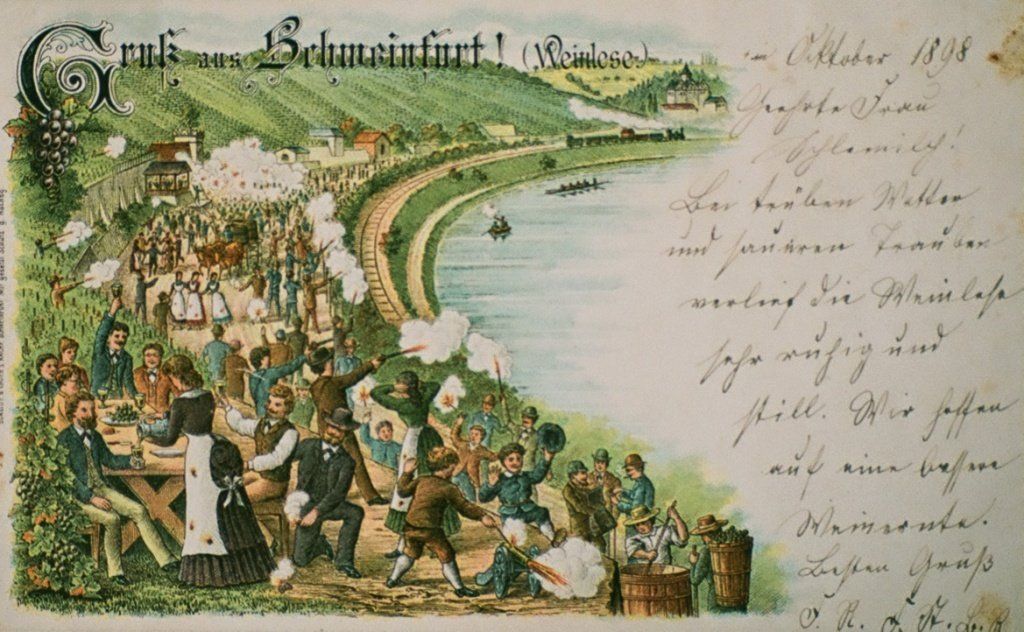 Gruß aus Schweinfurt! (Weinlese)
im Oktober 1898
Geehrte Frau
Schlemilch!
Bei trüben Wetter
und saueren Trauben
verlief die Weinlese
sehr ruhig und
still. Wir hoffen
auf eine bessere
Weinernte.
Besten Gruß